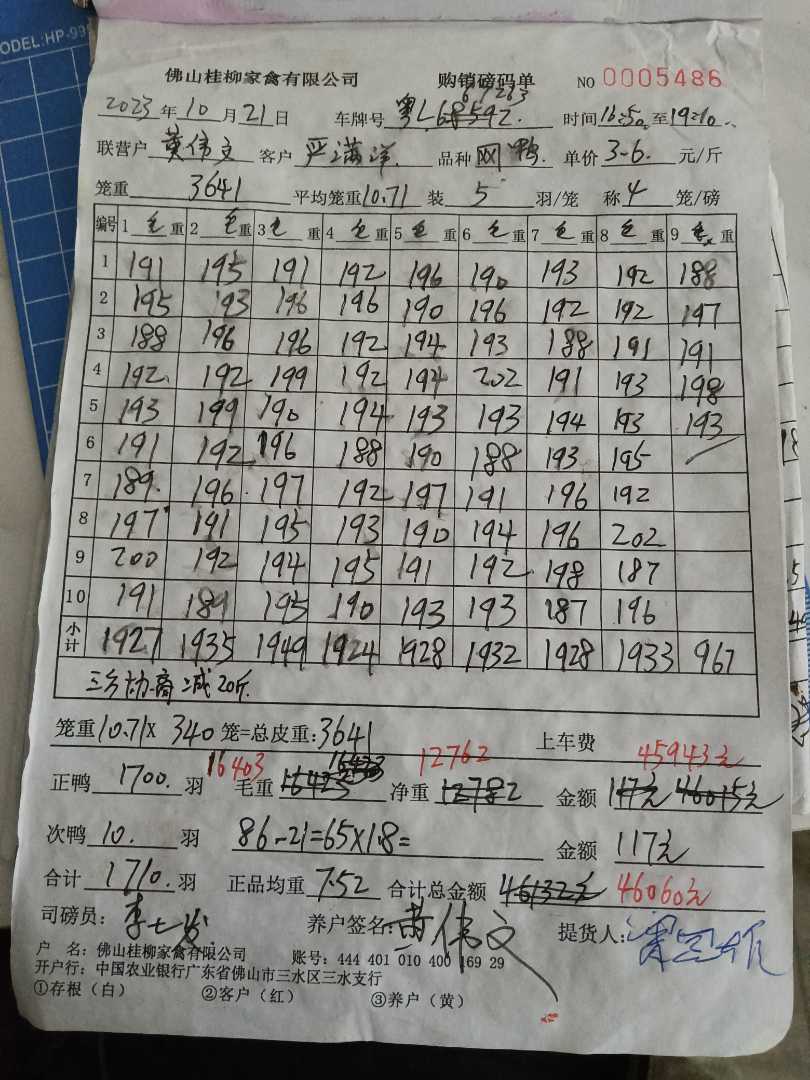 MODEL:HP-99
佛山桂柳家禽有限公司 购销磅码单 NO 0005486
2023年10月21日 车牌号 粤L68592 67283 时间16:50至19:10
联营户 黄伟文 客户 严满洋 品种 网鸭 单价 3-6 元/斤
笼重 3641 平均笼重10.71 装 5 羽/笼 称 4 笼/磅
编号 1 毛重 2 毛重 3 毛重 4 毛重 5 毛重 6 毛重 7 毛重 8 毛重 9 毛重
1 191 195 191 192 196 190 193 192 188
2 195 193 196 196 190 196 192 192 197
3 188 196 196 192 194 193 188 191 191
4 192 192 199 192 194 202 191 193 198
5 193 199 190 194 193 193 194 193 193
6 191 192 196 188 190 188 193 195
7 189 196 197 192 197 191 196 192
8 197 191 195 193 190 194 196 202
9 200 192 194 195 191 192 198 187
10 191 189 195 190 193 193 187 196
小计 1927 1935 1949 1924 1928 1932 1928 1933 967
三方协商减20斤
笼重10.71×340笼=总皮重:3641 上车费
16403 12762 45943元
正鸭 1700 羽 毛重 16423 净重 12782 金额 117元 46015元
次鸭 10 羽 86-21=65×1.8= 金额 117元
合计 1710 羽 正品均重 7.52 合计总金额 46132元 46060元
司磅员: 李七发 养户签名: 黄伟文 提货人:
户 名: 佛山桂柳家禽有限公司 账号: 444 401 010 400 169 29
开户行: 中国农业银行广东省佛山市三水区三水支行
①存根(白) ②客户(红) ③养户(黄)